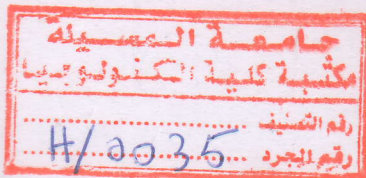 جامعة المسيلة
مكتبة كلية التكنولوجيا
رقم التصنيف ....................
رقم الجرد H/0035